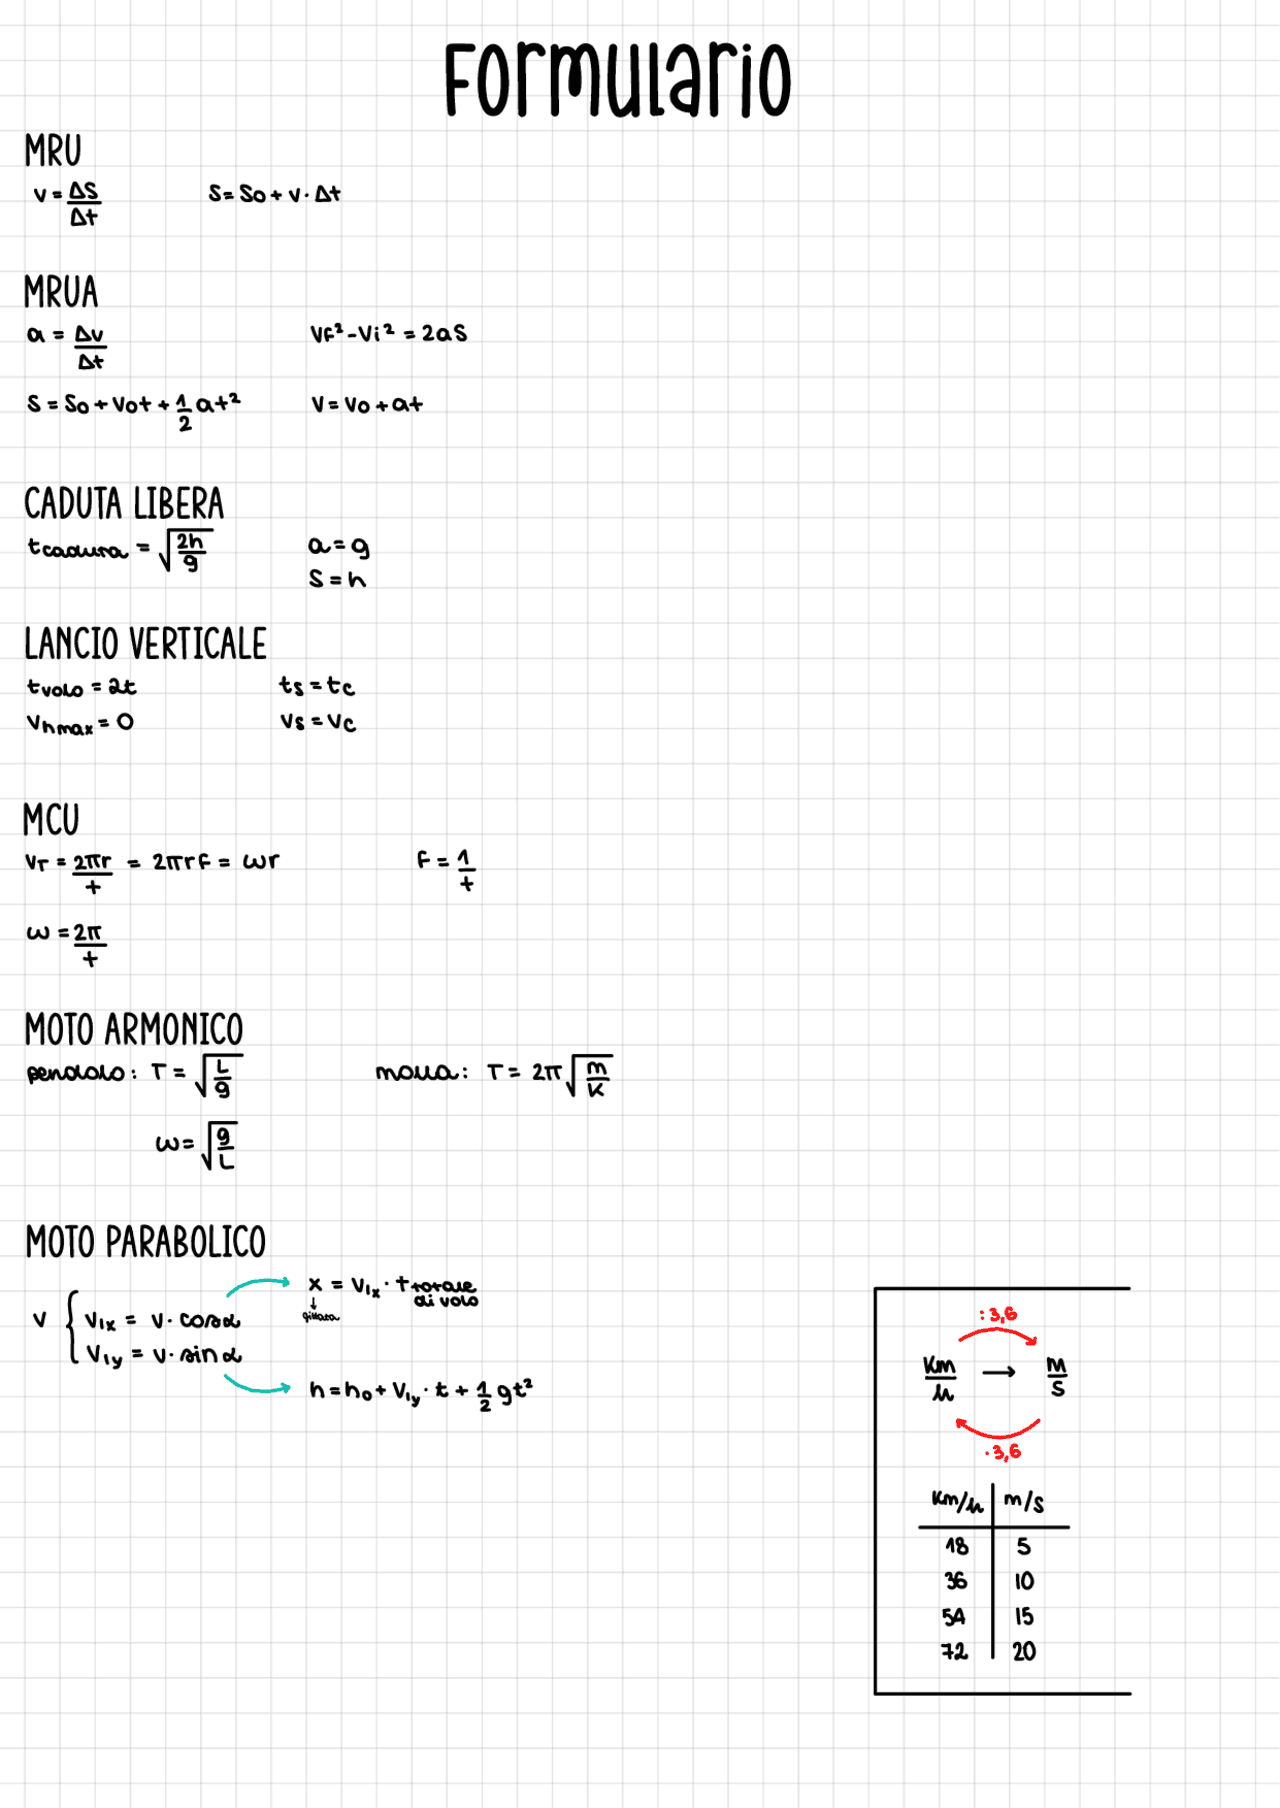 Formulario
MRU
v = ΔS/Δt    S = So + v · Δt
MRUA
a = Δv/Δt    Vf² - Vi² = 2aS
S = So + Vot + 1/2 at²    V = Vo + at
CADUTA LIBERA
tcaduta = √(2h/g)    a = g
S = h
LANCIO VERTICALE
tvolo = 2t    ts = tc
Vhmax = 0    Vs = Vc
MCU
VT = 2πr/t = 2πrF = ωr    F = 1/t
ω = 2π/t
MOTO ARMONICO
pendolo: T = √(L/g)    molla: T = 2π√(m/K)
ω = √(g/L)
MOTO PARABOLICO
x = V₁x · t totale di volo
↓
gittata
V { V₁x = v · cosα
V₁y = v · sinα
h = h₀ + V₁y · t + 1/2 gt²
: 3,6
Km/h → m/s
· 3,6
Km/h    m/s
18    5
36    10
54    15
72    20